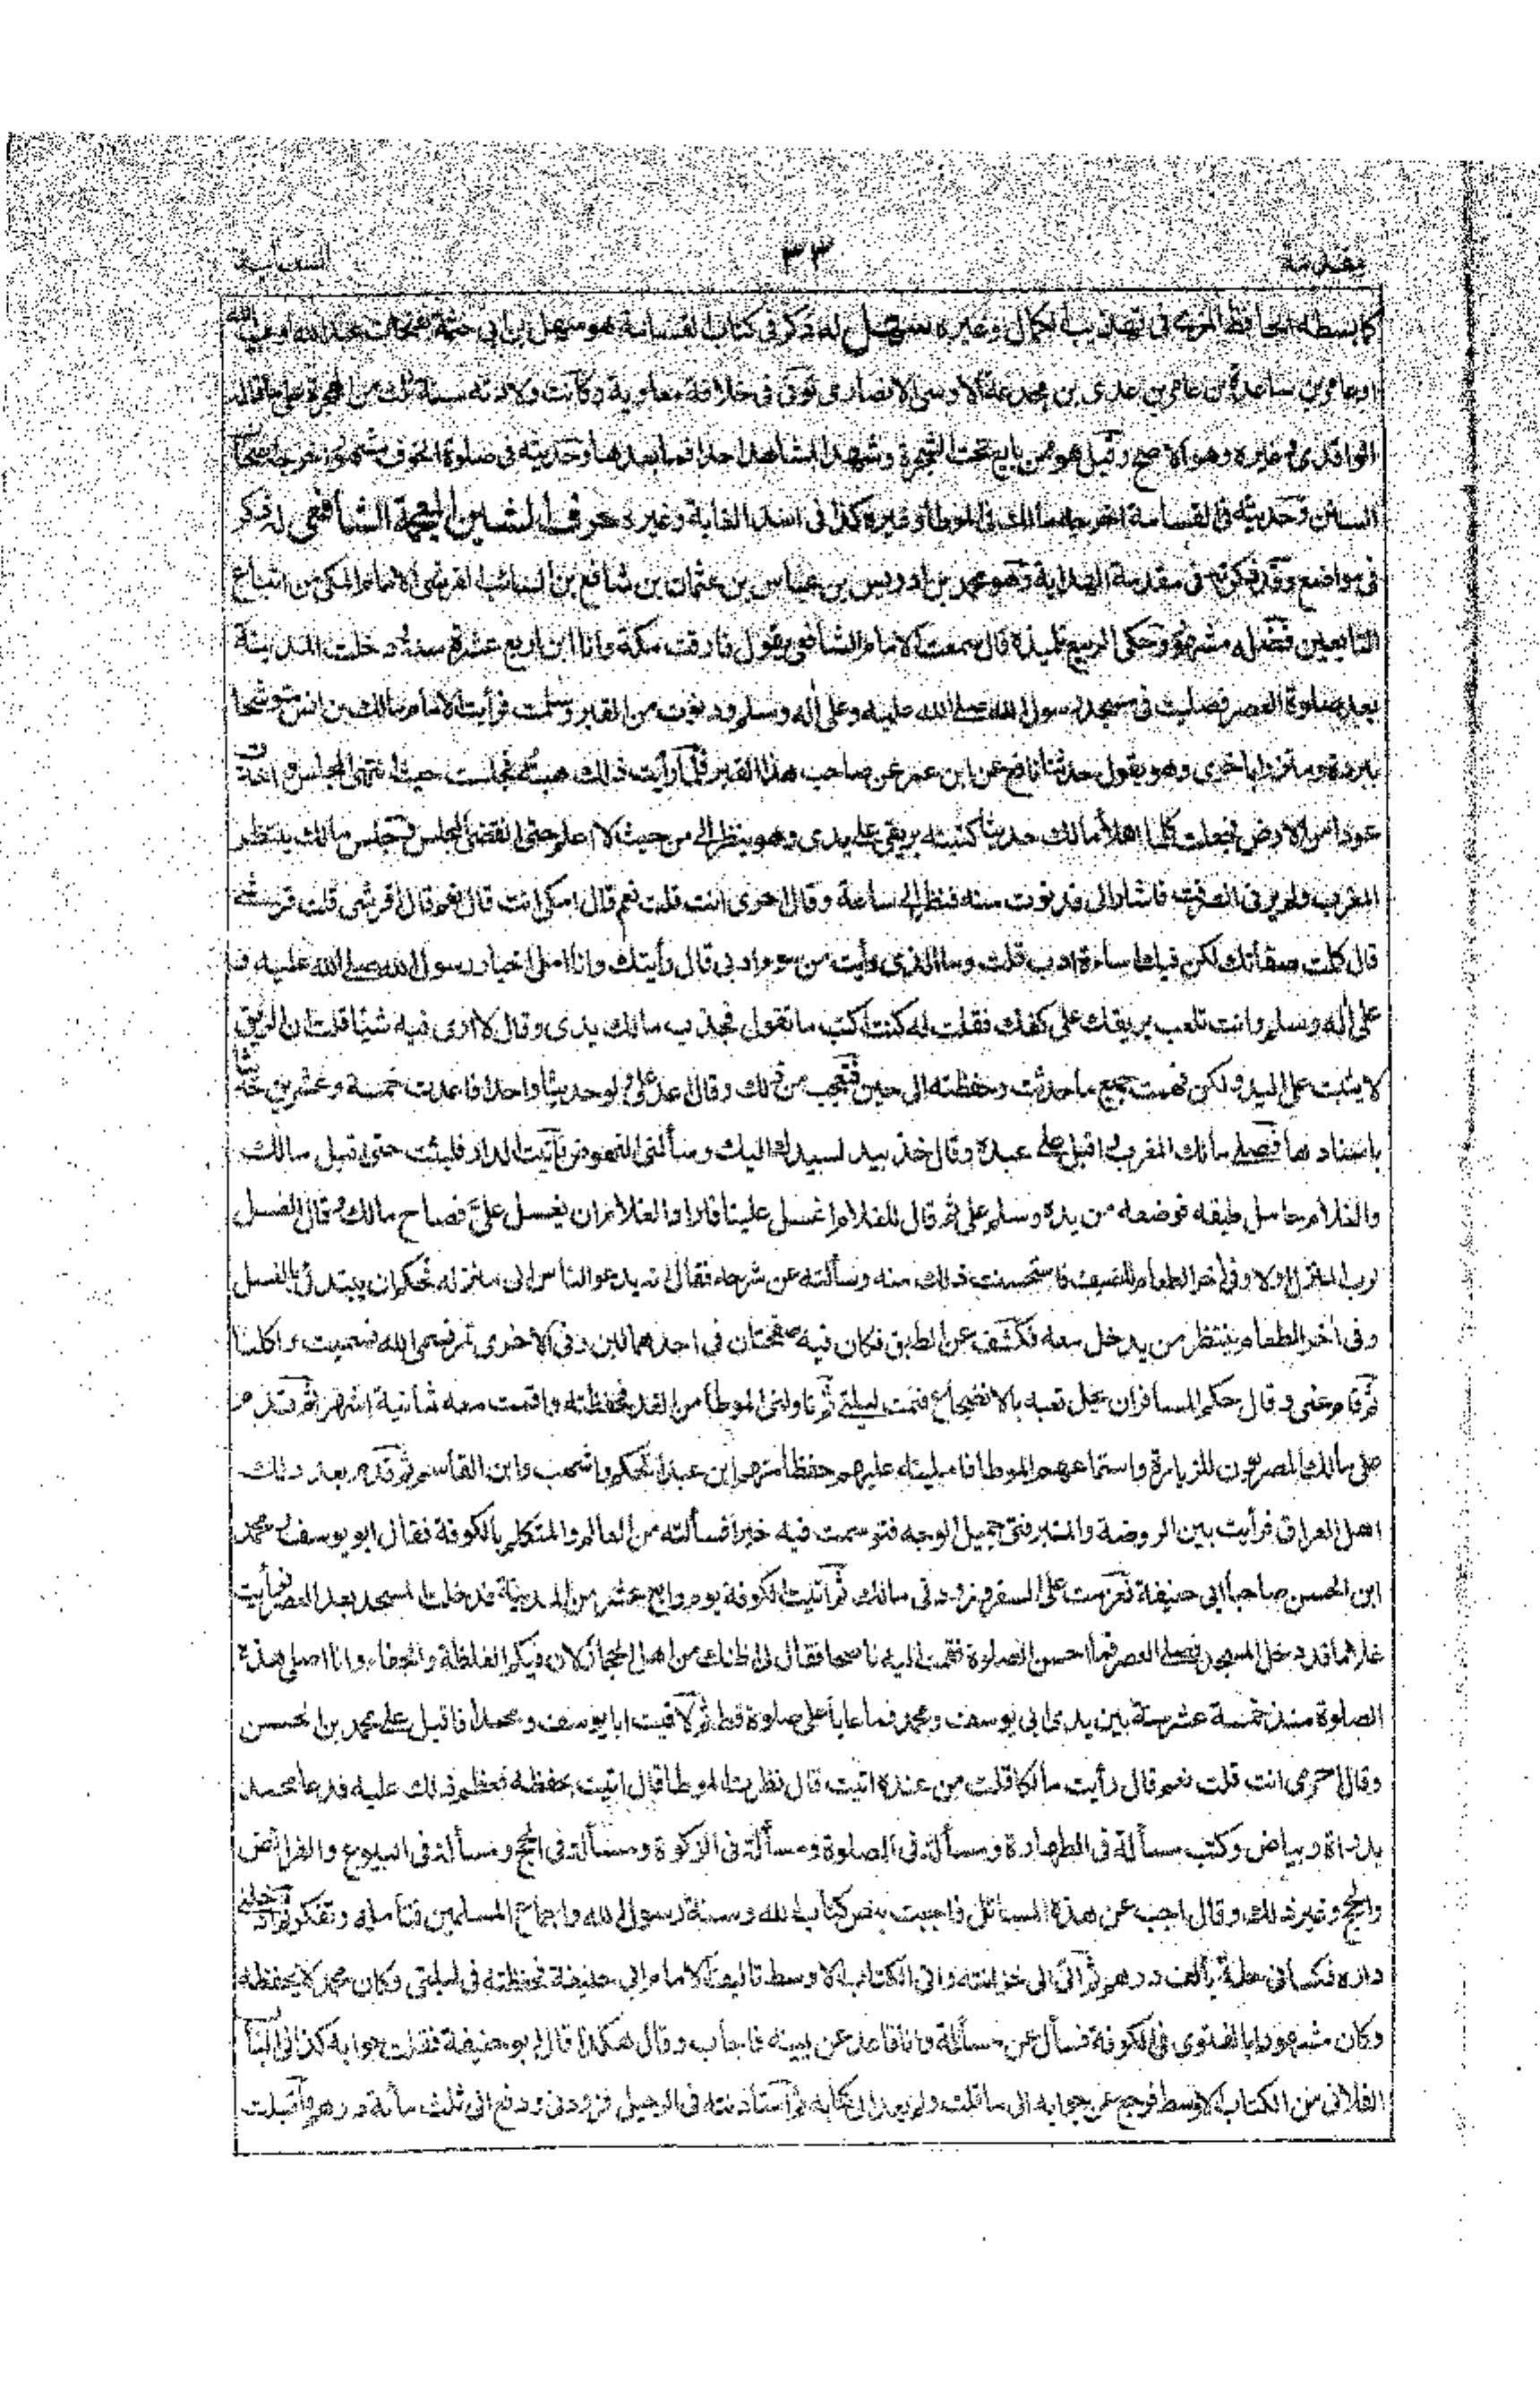 مقدمة ٣٣ السعاية
كما بسطه الحافظ المزي في تهذيب الكمال وغيره سهل له ذكر في كتاب القسامة هو سهل بن ابي حثمة عبد الله
او عامر بن ساعدة بن عامر بن عدي بن مجدعة الاوسي الانصاري توفي في خلافة معاوية وكانت ولادته سنة ثلث من الهجرة على ما قاله
الواقدي وغيره وهو الاصح وقيل هو ممن بايع تحت الشجرة وشهد المشاهد احدا فما بعدها وحديثه في صلوة الخوف مشهور
السنن وحديثه في القسامة اخرجه مالك في الموطأ وغيره كذا في اسد الغابة وغيره حرف الشين المعجمة الشافعي له ذكر
في مواضع وقد ذكرته في مقدمة الهداية وهو محمد بن ادريس بن عباس بن عثمان بن شافع بن السائب القرشي الامام المكي من اتباع
التابعين فضله مشهور وحكى الربيع تلميذه قال سمعت الامام الشافعي يقول فارقت مكة وانا ابن اربع عشرة سنة دخلت المدينة
بعد صلوة العصر فصليت في مسجد رسول الله صلى الله عليه وعلى أله وسلم ودنوت من القبر وسلمت فرأيت الامام مالك بن انس متوشحا
ببردة ومتزرا باخرى وهو يقول حدثنا نافع عن ابن عمر عن صاحب هذا القبر فلما رأيت ذلك هبته فجلست حيث انتهى المجلس واخذت
عودا من الارض فجعلت كلما املأ مالك حديثا كتبته بريقي على يدي وهو ينظر الي من حيث لا اعلم حتى انقضى المجلس وجلس مالك ينتظر
المغرب ولم يرني انصرفت فاشار الى فدنوت منه فنظر الي ساعة وقال احرمي انت قلت نعم قال امكي انت قال نعم قال اقرشي قلت قرشي
قال كملت صفاتك لكن فيك اساءة ادب قلت وما الذي رأيت من سوء ادبي قال رأيتك وانا املى اخبار رسول الله صلى الله عليه و
على أله وسلم وانت تلعب بريقك على كفك فقلت له كنت اكتب ما تقول فجذب مالك يدي وقال لا ارى فيه شيئا قلت ان الريق
لا يثبت على اليد ولكن فهمت جميع ما حدثت وحفظته الى حين فتعجب من ذلك وقال اعد علي ولو حديثا واحدا فاعدت خمسة وعشرين حديثا
باسنادها فصلى مالك المغرب اقبل على عبده وقال خذ بيد لسيدك اليك وسألني النهوض فاتيت الدار فلبثت حتى اقبل مالك
والغلام حامل طبقه فوضعه من يده وسلم علي ثم قال للغلام اغسل علينا فاراد الغلام ان يغسل علي فصاح مالك وقال الغسل
لرب المنزل اولا وفي أخر الطعام للضيف فاستحسنت ذلك منه وسألته عن شرحه فقال انه يدعو الناس الى منزله فحكم ان يبتدئ بالغسل
وفي أخر الطعام ينتظر من يدخل معه فكشف عن الطبق فكان فيه صفحتان في احدهما لبن وفي الاخرى تمر فسمى الله فسميت واكلنا
ثم قام عني وقال حكم المسافر ان يحل تعبه بالاضجاع فنمت ليلتي ثم ناولني الموطأ من الغد فحفظته واقمت معه ثمانية اشهر ثم قدم
على مالك المصريون للزيارة واستماعهم الموطا فامليته عليهم حفظا منهم ابن عبد الحكم واشهب وابن القاسم ثم قدم بعد ذلك
اهل العراق فرأيت بين الروضة والمنبر فتى جميل الوجه فتوسمت فيه خيرا فسألته من العالم والمتكلم بالكوفة فقال ابو يوسف ومحمد
ابن الحسن صاحبا ابي حنيفة فعزمت على السفر فزودني مالك ثم اتيت الكوفة يوم رابع عشر من المدينة فدخلت المسجد بعد العصر فرأيت
غلاما قد دخل المسجد فصلى العصر فما احسن الصلوة فقمت اليه ناصحا فقال لي اظنك من اهل الحجاز لان فيكم الغلظة والجفاء وانا اصلي هذه
الصلوة منذ خمسة عشر سنة بين يدي ابي يوسف ومحمد فما عابا على صلوة قط ثم لاقيت ابا يوسف ومحمدا فاقبل على محمد بن الحسن
وقال احرمي انت قلت نعم قال رأيت مالكا قلت من عنده اتيت قال نظرت الموطا قال اتيت بحفظه فعظم ذلك عليه فدعا محمد
بدواة وبياض وكتب مسألة في الطهارة ومسألة في الصلوة ومسألة في الزكوة ومسألة في الحج ومسألة في البيوع والفرائض
والحج وغير ذلك وقال اجب عن هذه المسائل فاجبت بنص كتاب الله وسنة رسول الله واجماع المسلمين فتأمله وتفكر
داره فكساني حلة بألف درهم ثم اتى الى خزانته واتى الكتاب الاوسط تاليف الامام ابي حنيفة فحفظته في ليلتي وكان محمد لا يحفظه
وكان مشهورا بالفتوى في الكوفة فسأل عن مسألة وانا قاعد عن يمينه فاجاب وقال هكذا قال ابو حنيفة فقلت جوابه كذا في الباب
الفلاني من الكتاب الاوسط فرجع عن جوابه الى ما قلت ولم يعد الى كتابه ثم استأذنته في الرحيل فزودني ودفع الي ثلث مأئة درهم واقبلت